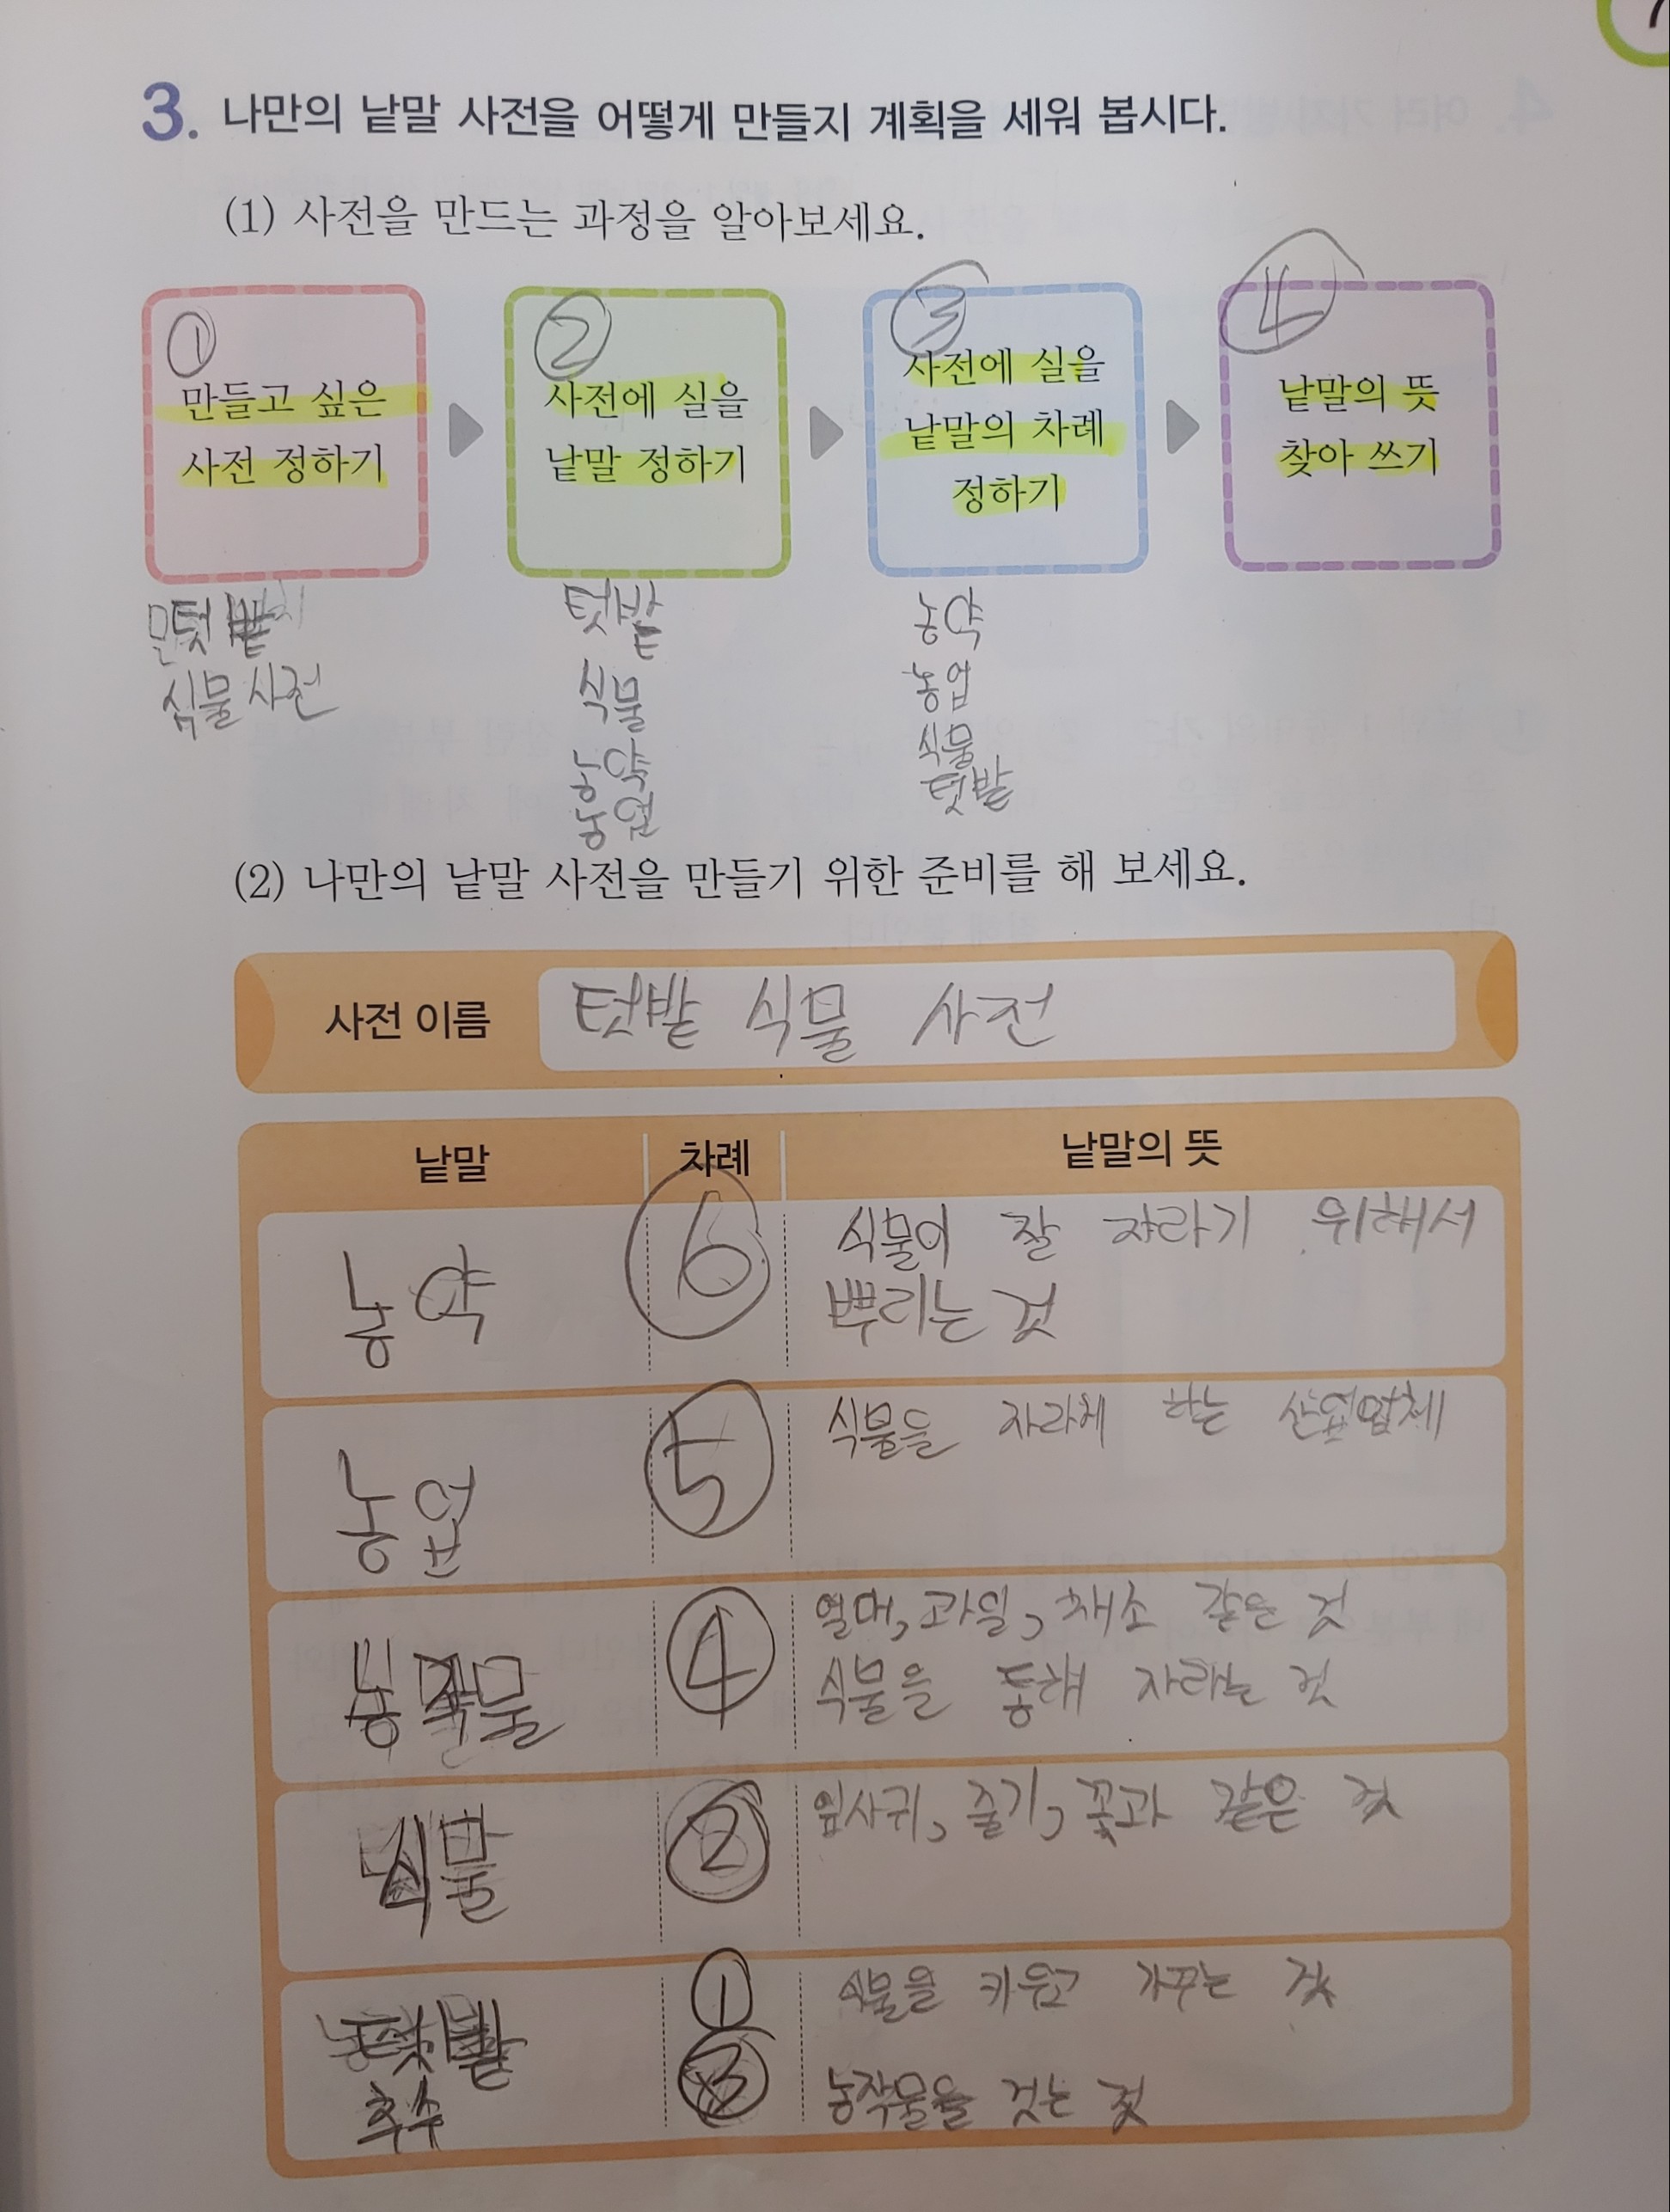 3. 나만의 낱말 사전을 어떻게 만들지 계획을 세워 봅시다.
(1) 사전을 만드는 과정을 알아보세요.
①
만들고 싶은
사전 정하기
②
사전에 실을
낱말 정하기
③
사전에 실을
낱말의 차례
정하기
4
낱말의 뜻
찾아 쓰기
텃밭
식물 사전
텃밭
식물
농약
농업
농약
농업
식물
텃밭
(2) 나만의 낱말 사전을 만들기 위한 준비를 해 보세요.
사전 이름 텃밭 식물 사전
낱말 차례 낱말의 뜻
농약 ⑥ 식물이 잘 자라기 위해서
뿌리는 것
농업 ⑤ 식물을 자라게 하는 산업업체
농작물 ④ 열매, 과일, 채소 같은 것
식물을 통해 자라는 것
식물 ② 잎사귀, 줄기, 꽃과 같은 것
텃밭 ① 식물을 키우고 가꾸는 것
추수 ③ 농작물을 것는 것